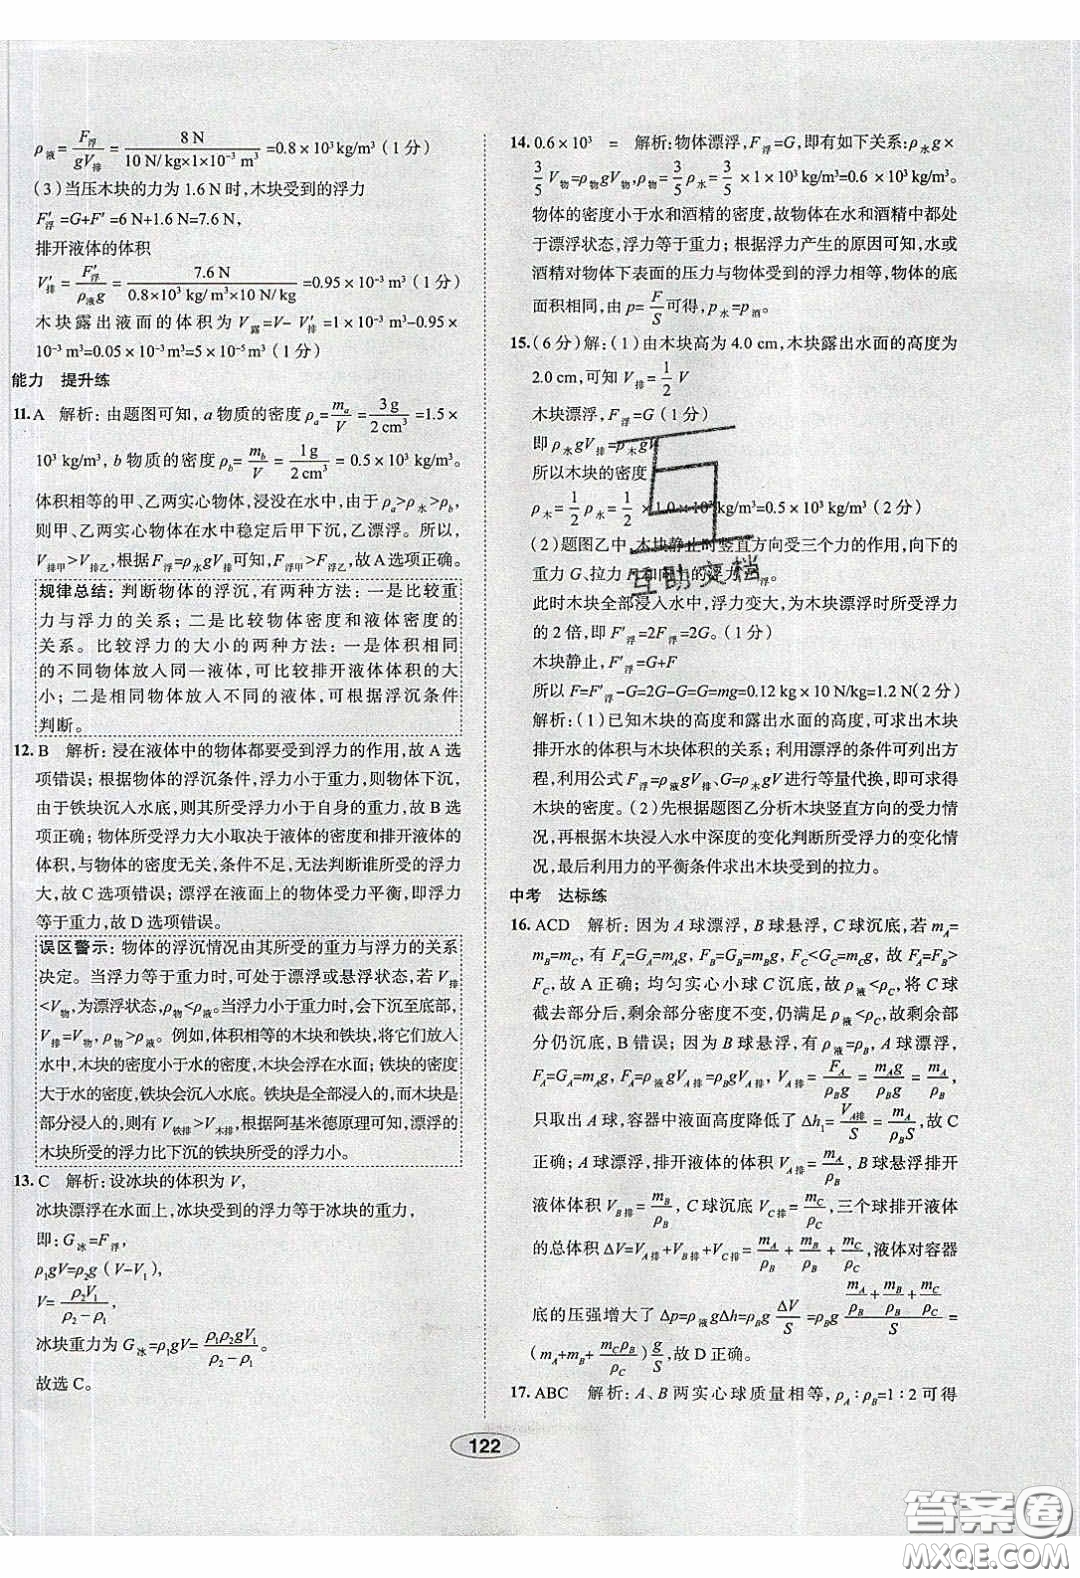 ρ液=F浮/gV排=8 N/10 N/kg×1×10⁻³ m³=0.8×10³kg/m³(1分)
(3)当压木块的力为1.6 N时,木块受到的浮力
F′浮=G+F′=6 N+1.6 N=7.6 N,
排开液体的体积
V′排=F′浮/ρ液g=7.6 N/0.8×10³ kg/m³×10 N/kg=0.95×10⁻³ m³(1分)
木块露出液面的体积为V露=V-V′排=1×10⁻³ m³-0.95×
10⁻³ m³=0.05×10⁻³ m³=5×10⁻⁵m³(1分)
能力 提升练
11.A 解析:由题图可知,a物质的密度ρa=ma/V=3 g/2 cm³=1.5×
10³ kg/m³,b物质的密度ρb=mb/V=1 g/2 cm³=0.5×10³ kg/m³。
体积相等的甲、乙两实心物体,浸没在水中,由于ρa>ρ水>ρb,
则甲、乙两实心物体在水中稳定后甲下沉,乙漂浮。所以,
V排甲>V排乙,根据F浮=ρ水gV排,F浮甲>F浮乙,故A选项正确。
规律总结:判断物体的浮沉,有两种方法:一是比较重
力与浮力的关系;二是比较物体密度和液体密度的
关系。比较浮力的大小的两种方法:一是体积相同
的不同物体放入同一液体,可比较排开液体体积的大
小;二是相同物体放入不同的液体,可根据浮沉条件
判断。
12.B 解析:浸在液体中的物体都要受到浮力的作用,故A选
项错误;根据物体的浮沉条件,浮力小于重力,则物体下沉,
由于铁块沉入水底,则其所受浮力小于自身的重力,故B选
项正确;物体所受浮力大小取决于液体的密度和排开液体的
体积,与物体的密度无关,条件不足,无法判断谁所受的浮力
大,故C选项错误;漂浮在液面上的物体受力平衡,即浮力
等于重力,故D选项错误。
误区警示:物体的浮沉情况由其所受的重力与浮力的关系
决定。当浮力等于重力时,可处于漂浮或悬浮状态,若V排
<V物,为漂浮状态,ρ物<ρ液。当浮力小于重力时,会下沉至底部,
V排=V物,ρ物>ρ液。例如,体积相等的木块和铁块,将它们放入
水中,木块的密度小于水的密度,木块会浮在水面;铁块的密度
大于水的密度,铁块会沉入水底。铁块是全部浸入的,而木块是
部分浸入的,则有V铁排>V木排,根据阿基米德原理可知,漂浮的
木块所受的浮力比下沉的铁块所受的浮力小。
13.C 解析:设冰块的体积为V,
冰块漂浮在水面上,冰块受到的浮力等于冰块的重力,
即:G冰=F浮,
ρ₁gV=ρ₂g(V-V₁),
V=ρ₂V₁/ρ₂-ρ₁,
冰块重力为G冰=ρ₁gV=ρ₁ρ₂gV₁/ρ₂-ρ₁。
故选C。
14.0.6×10³ = 解析:物体漂浮,F浮=G,即有如下关系:ρ水g×
3/5 V物=ρ物gV物,ρ物=3/5 ρ水=3/5×1×10³ kg/m³=0.6×10³ kg/m³。
物体的密度小于水和酒精的密度,故物体在水和酒精中都处
于漂浮状态,浮力等于重力;根据浮力产生的原因可知,水或
酒精对物体下表面的压力与物体受到的浮力相等,物体的底
面积相同,由p=F/S可得,p水=p酒。
15.(6分)解:(1)由木块高为4.0 cm,木块露出水面的高度为
2.0 cm,可知V排=1/2 V
木块漂浮,F浮=G(1分)
即ρ水gV排=ρ木gV
所以木块的密度
ρ木=1/2 ρ水=1/2×1.0×10³ kg/m³=0.5×10³ kg/m³(2分)
(2)题图乙中,木块静止时竖直方向受三个力的作用,向下的
重力G、拉力F和向上的浮力F′浮
此时木块全部浸入水中,浮力变大,为木块漂浮时所受浮力
的2倍,即F′浮=2F浮=2G。(1分)
木块静止,F′浮=G+F
所以F=F′浮-G=2G-G=G=mg=0.12 kg×10 N/kg=1.2 N(2分)
解析:(1)已知木块的高度和露出水面的高度,可求出木块
排开水的体积与木块体积的关系;利用漂浮的条件可列出方
程,利用公式F浮=ρ液gV排、G=ρ木gV进行等量代换,即可求得
木块的密度。(2)先根据题图乙分析木块竖直方向的受力情
况,再根据木块浸入水中深度的变化判断所受浮力的变化情
况,最后利用力的平衡条件求出木块受到的拉力。
中考 达标练
16.ACD 解析:因为A球漂浮,B球悬浮,C球沉底,若mA=
mB=mC,有FA=GA=mAg,FB=GB=mBg,FC<GC=mCg,故FA=FB>
FC,故A正确;均匀实心小球C沉底,故ρ液<ρC,将C球
截去部分后,剩余部分密度不变,仍满足ρ液<ρC,故剩余部
分仍沉底,B错误;因为B球悬浮,有ρ液=ρB,A球漂浮,
FA=GA=mAg,FA=ρ液gVA排=ρBgVA排,VA排=FA/ρBg=mAg/ρBg=mA/ρB,
只取出A球,容器中液面高度降低了Δh₁=VA排/S=mA/ρBS,故C
正确;A球漂浮,排开液体的体积VA排=mA/ρB,B球悬浮排开
液体体积VB排=mB/ρB,C球沉底VC排=mC/ρC,三个球排开液体
的总体积ΔV=VA排+VB排+VC排=mA/ρB+mB/ρB+mC/ρC,液体对容器
底的压强增大了Δp=ρ液gΔh=ρBg ΔV/S=ρBg (mA/ρB+mB/ρB+mC/ρC)/S=
(mA+mB+mCρB/ρC)g/S,故D正确。
17.ABC 解析:A、B两实心球质量相等,ρA:ρB=1:2可得
互助文档
122
答案圈
MXQE.COM